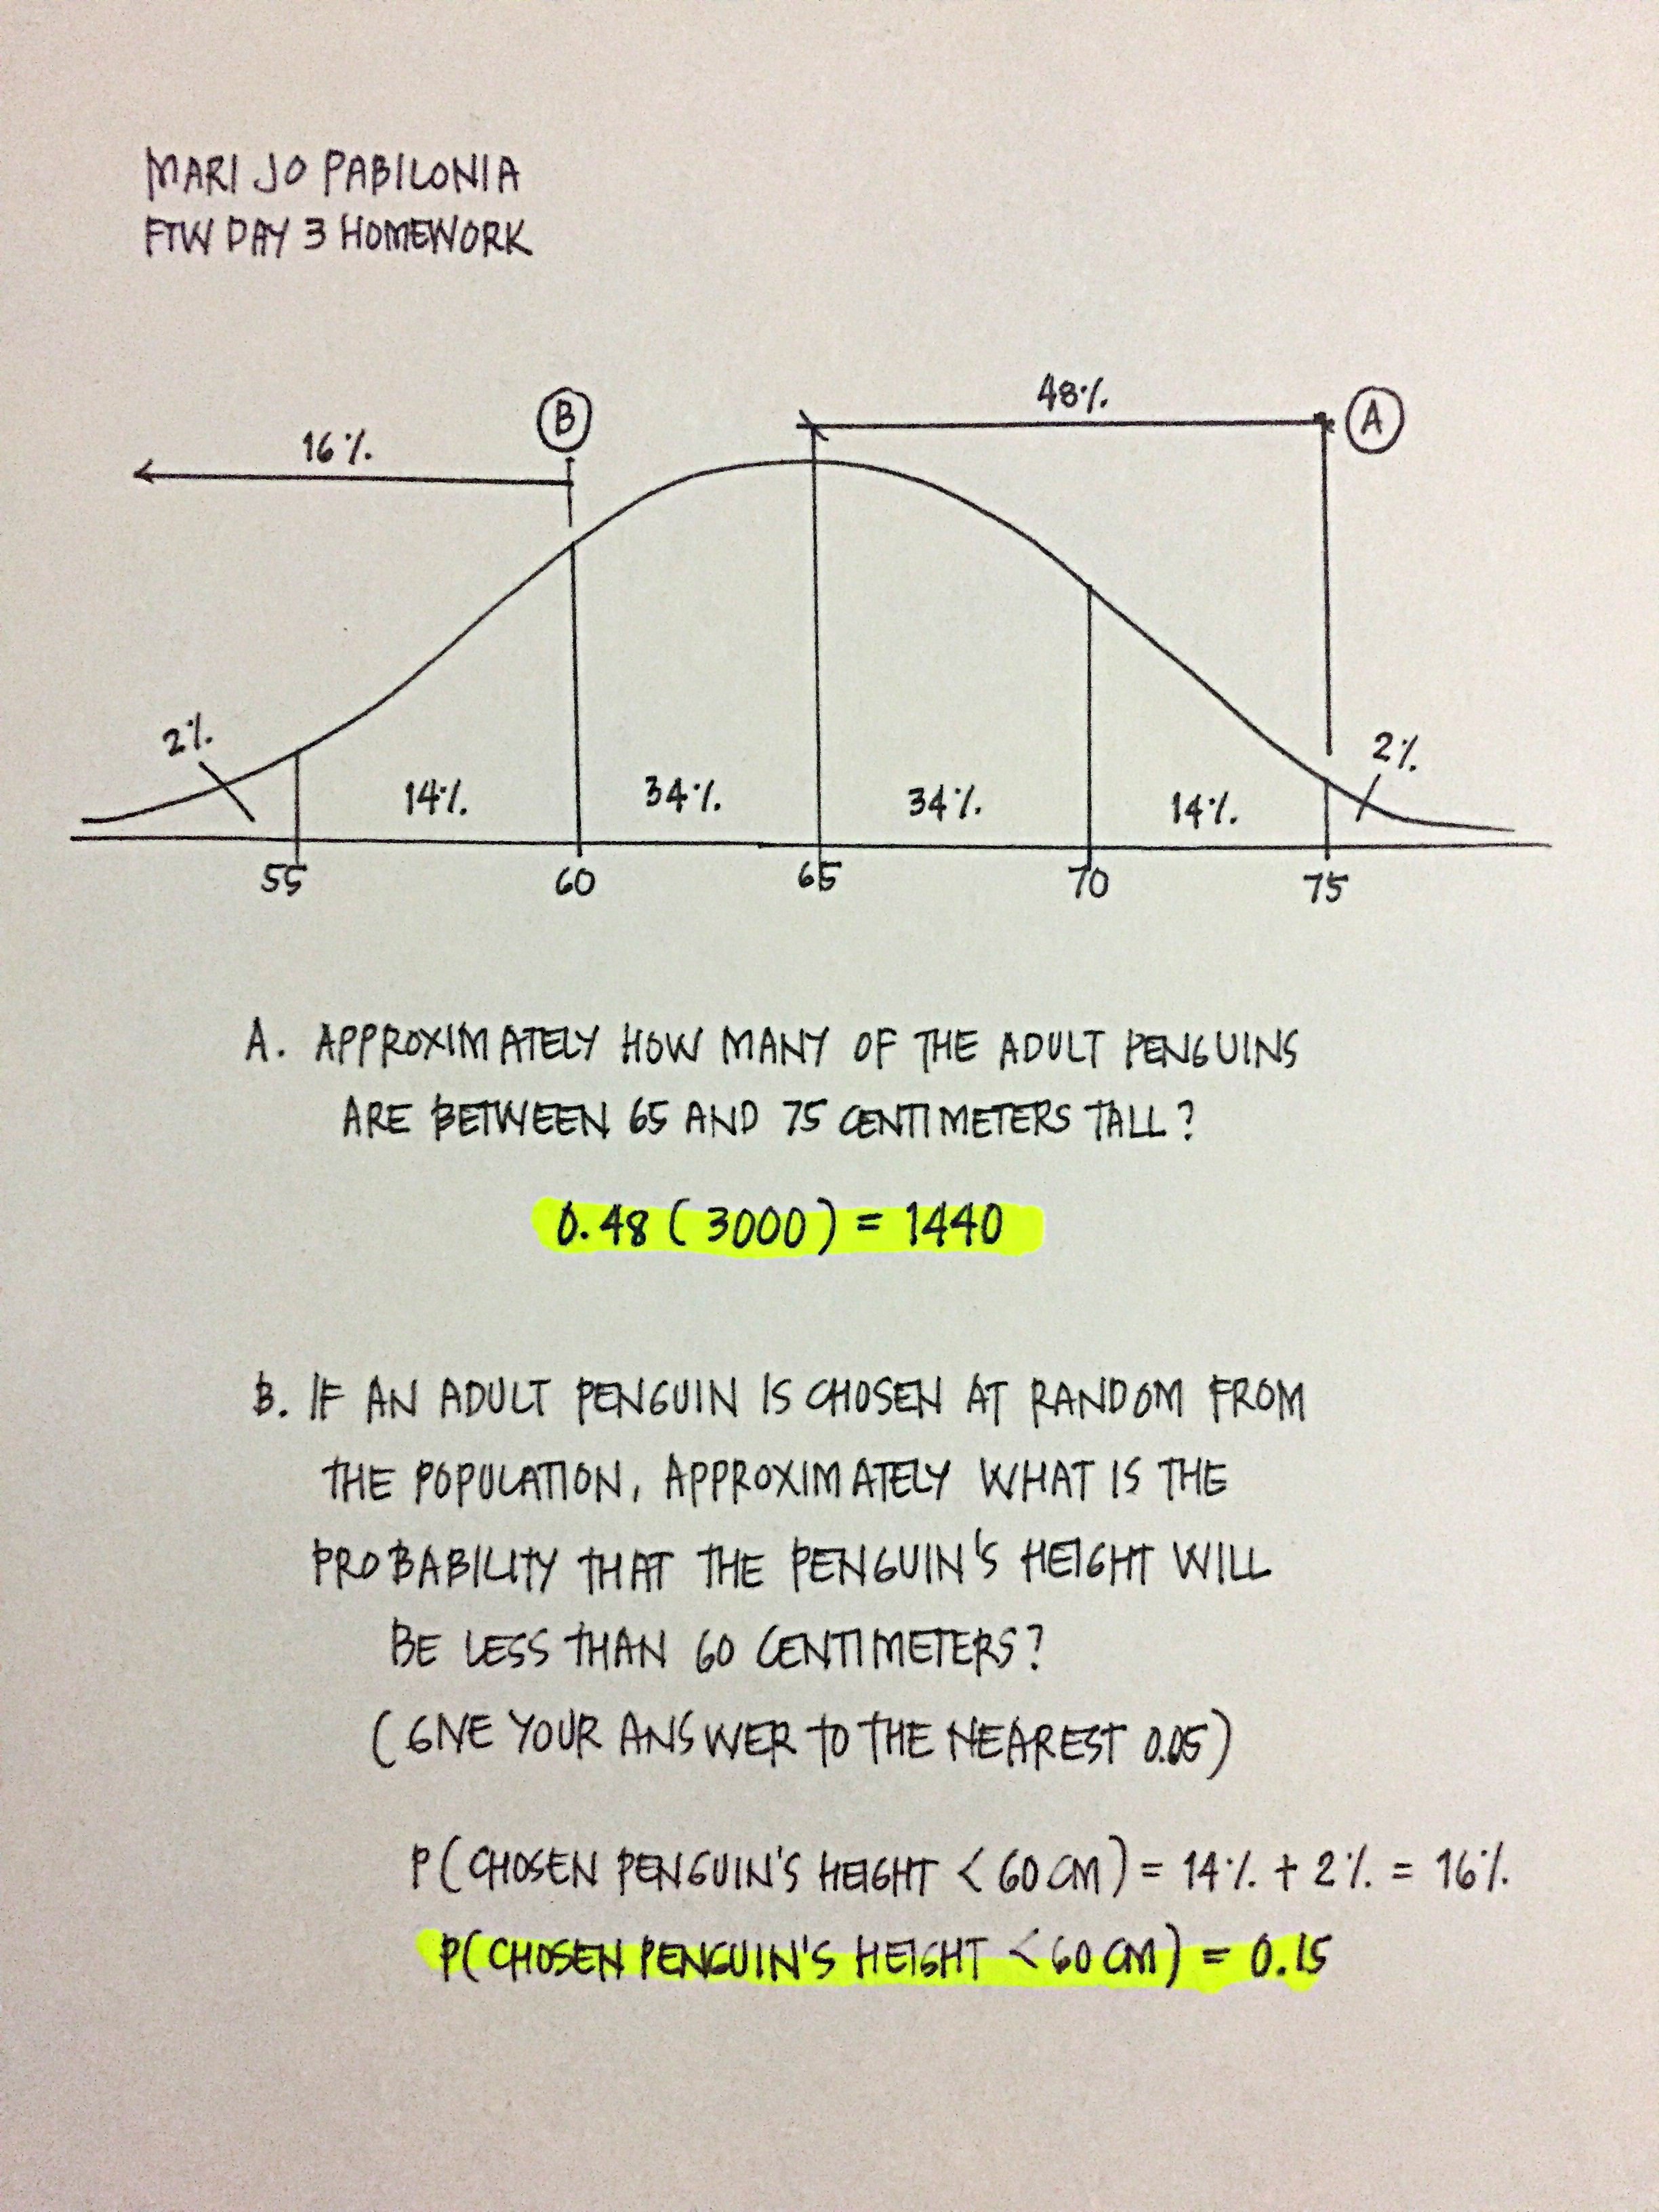 MARI JO PABILONIA
FTW DAY 3 HOMEWORK
48%
B
A
16%
2%
2%
14%
34%
34%
14%
55
60
65
70
75
A. APPROXIMATELY HOW MANY OF THE ADULT PENGUINS
ARE BETWEEN 65 AND 75 CENTIMETERS TALL?
0.48 (3000) = 1440
B. IF AN ADULT PENGUIN IS CHOSEN AT RANDOM FROM
THE POPULATION, APPROXIMATELY WHAT IS THE
PROBABILITY THAT THE PENGUIN'S HEIGHT WILL
BE LESS THAN 60 CENTIMETERS?
(GIVE YOUR ANSWER TO THE NEAREST 0.05)
P(CHOSEN PENGUIN'S HEIGHT < 60 CM) = 14% + 2% = 16%
P(CHOSEN PENGUIN'S HEIGHT < 60 CM) = 0.15